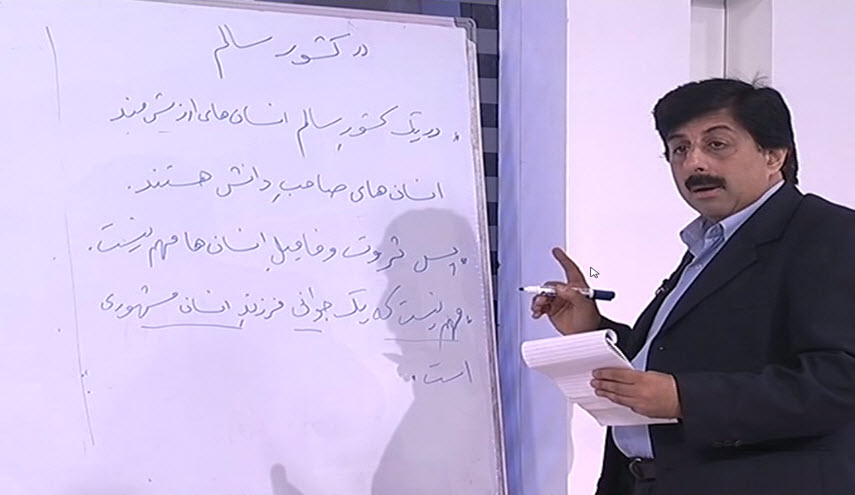 در کشور سالم
. در یک کشور سالم انسان‌های ارزشمند
انسان‌های صاحبِ دانش هستند.
. پس ثروت و فامیلِ انسان‌ها مهم نیست.
. مهم نیست که یک جوانی فرزندِ انسان مشهوری
است.